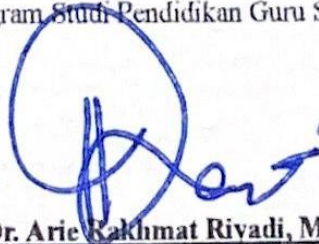 gram Studi Pendidikan Guru S
Dr. Arie Rakhmat Riyadi, M